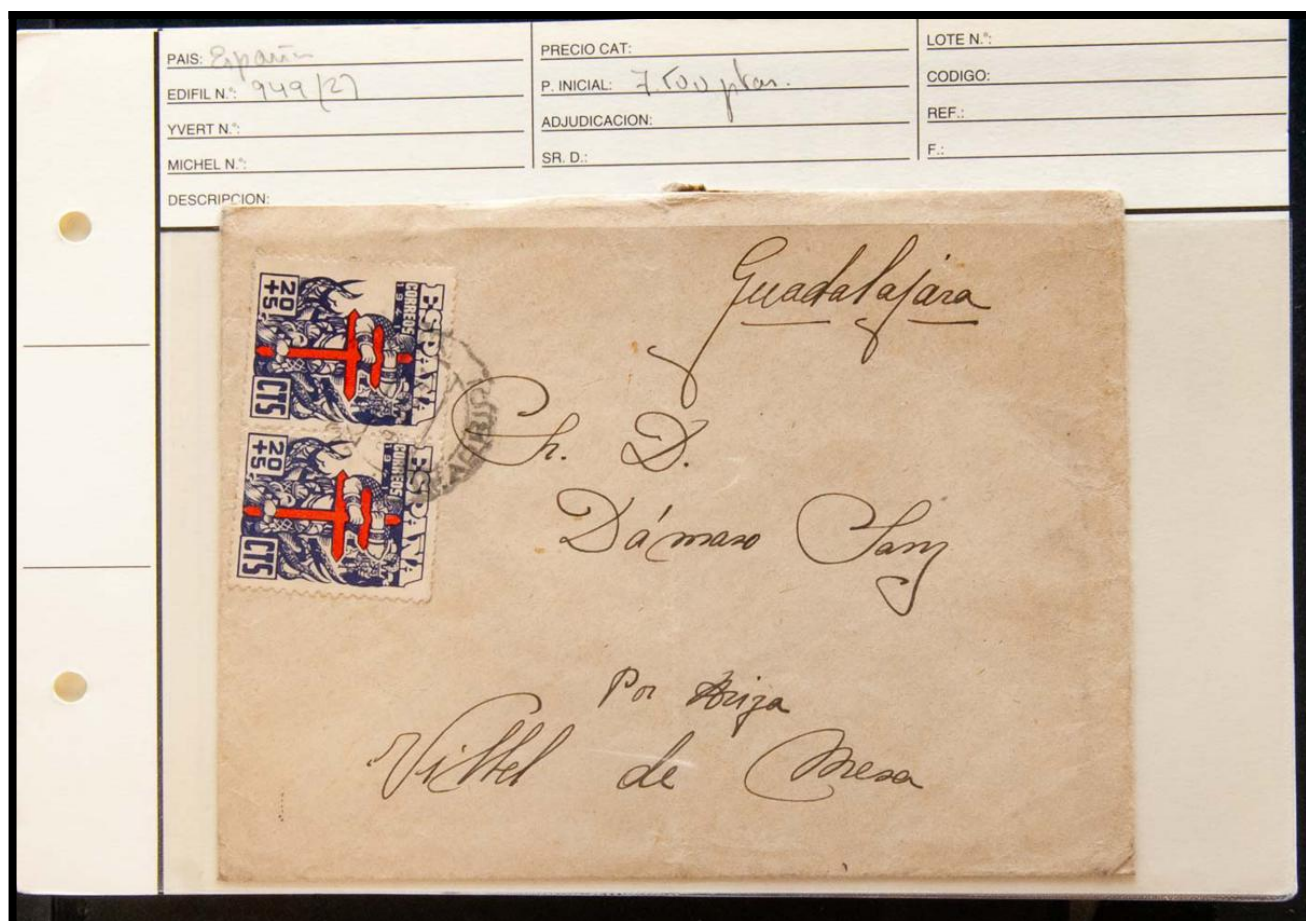 PAIS: España
EDIFIL N.º: 949 (2)
YVERT N.º:
MICHEL N.º:
DESCRIPCION:
PRECIO CAT:
P. INICIAL: 7.500 ptas.
ADJUDICACION:
SR. D.:
LOTE N.º:
CODIGO:
REF.:
F.:
ESPAÑA
CORREOS
20
+5
CTS
ESPAÑA
CORREOS
20
+5
CTS
Guadalajara
D.
Dámaso Sanz
Por Ariza
Villel de Mesa